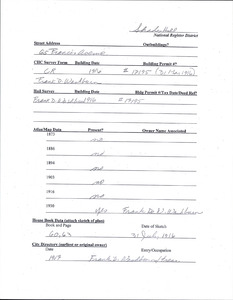 National Register District
Street Address Outbuildings?
65 Francis Avenue
CHC Survey Form Building Date Building Permit #?
1916 # 19195 (31 Mar 1916)
Frank D. Washburn
Hail Survey Building Date Bldg Permit #/Tax Date/Deed Ref?
1916 # 19195
Atlas/Map Data Present? Owner Name Associated
1873 no
1886 no
1894 no
1903 no
1916 no
1930 yes Frank D. W. Washburn
House Book Data (attach sketch of plan)
Book and Page Date of Sketch
60, 63 31 July, 1916
City Directory (earliest or original owner)
Date Entry/Occupation
1917 Frank D. Washburn